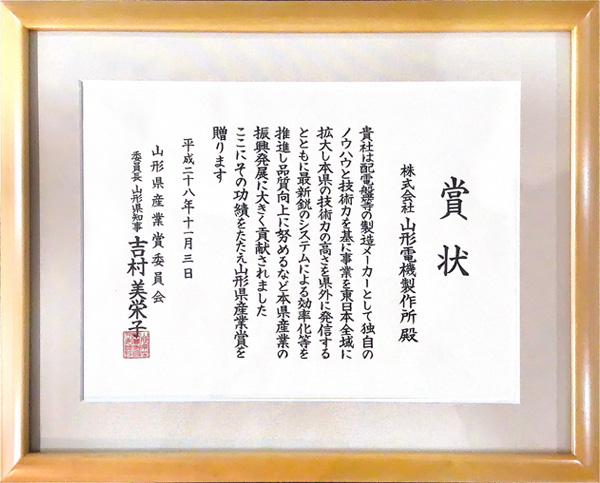 賞状
株式会社 山形電機製作所 殿
貴社は配電盤等の製造メーカーとして独自の
ノウハウと技術力を基に事業を東日本全域に
拡大し本県の技術力の高さを県外に発信する
とともに最新鋭のシステムによる効率化等を
推進し品質向上に努めるなど本県産業の
振興発展に大きく貢献されました
ここにその功績をたたえ山形県産業賞を
贈ります
平成二十八年十一月三日
山形県産業賞委員会
委員長 山形県知事 吉村美栄子